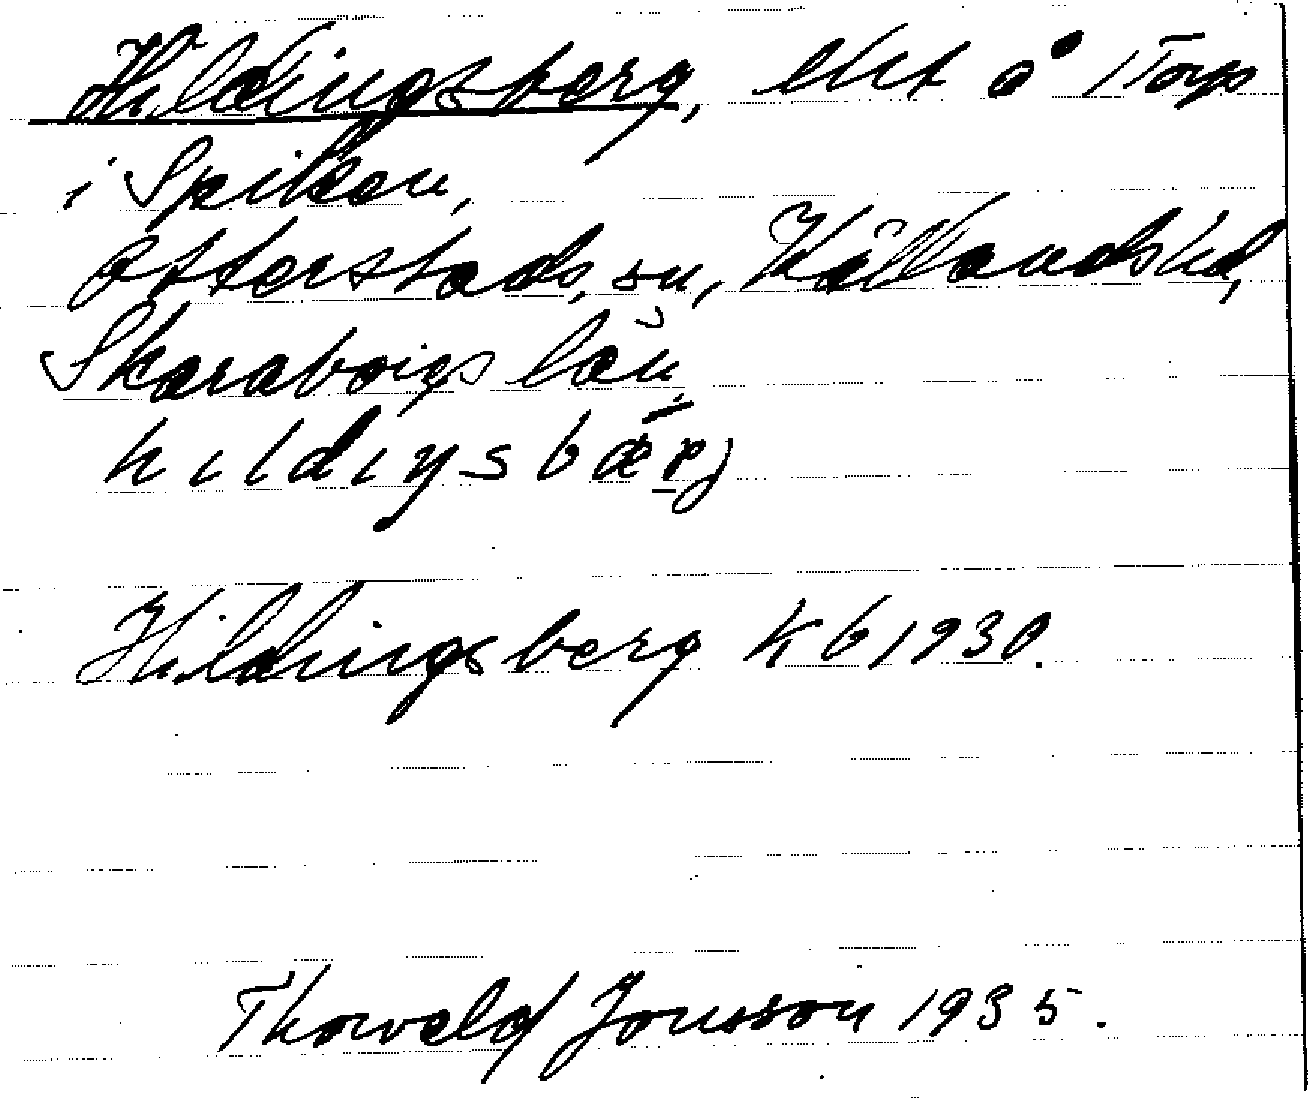 Hildingsberg, ehet å 1 Torp
i Spiken,
Otterstads, sn, Kållandshd,
Skaraborgs län,
hıldıŋsbǽr̠j
Hildingsberg Kb 1930.
Thorvald Jonsson 1935.